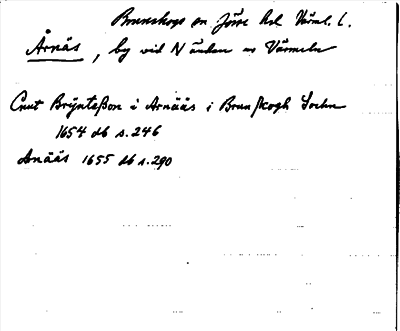 Brunskogs sn Jösse hd Värml. l.
Årnäs, by vid N änden av Värmeln
Cnut Bryntesson i Arnääs i Brunsskogh Sochn
1654 db s. 246
Anääs 1655 db s. 290